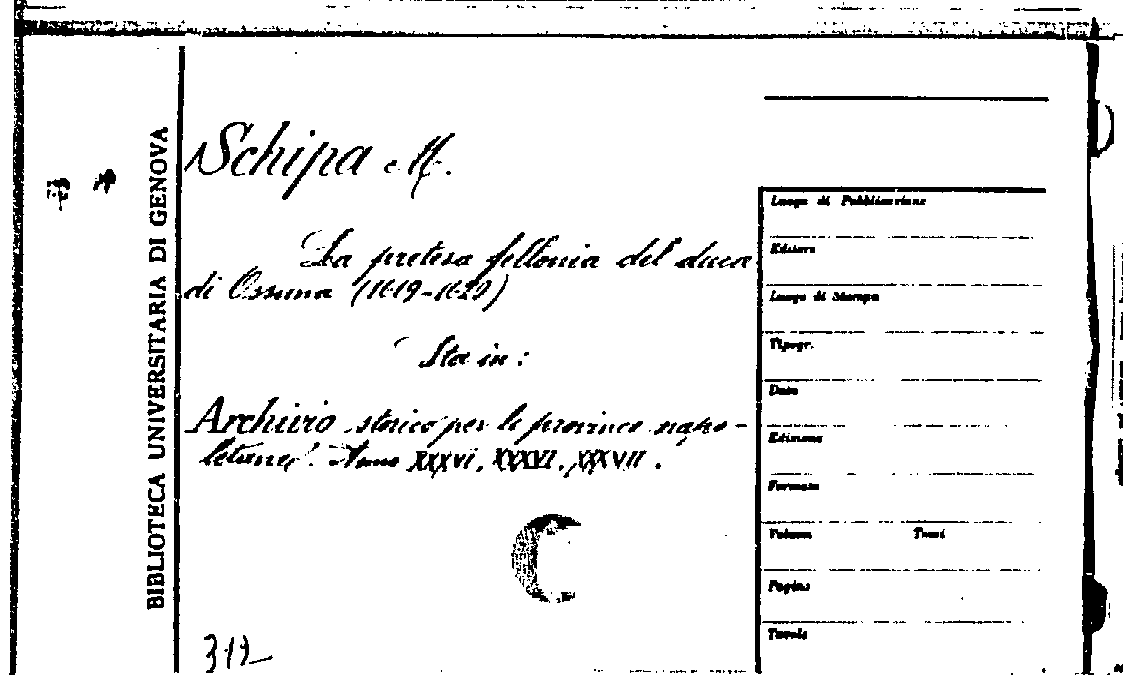 BIBLIOTECA UNIVERSITARIA DI GENOVA
Schipa M.
La pretesa fellonia del duca
di Ossuna (1619-1620)
Sta in:
Archivio storico per le province napo-
letane. Anno XXXVI, XXXVI, XXXVII.
Luogo di Pubblicazione
Editore
Luogo di Stampa
Tipogr.
Data
Edizione
Formato
Volume Tomi
Pagine
Tavole